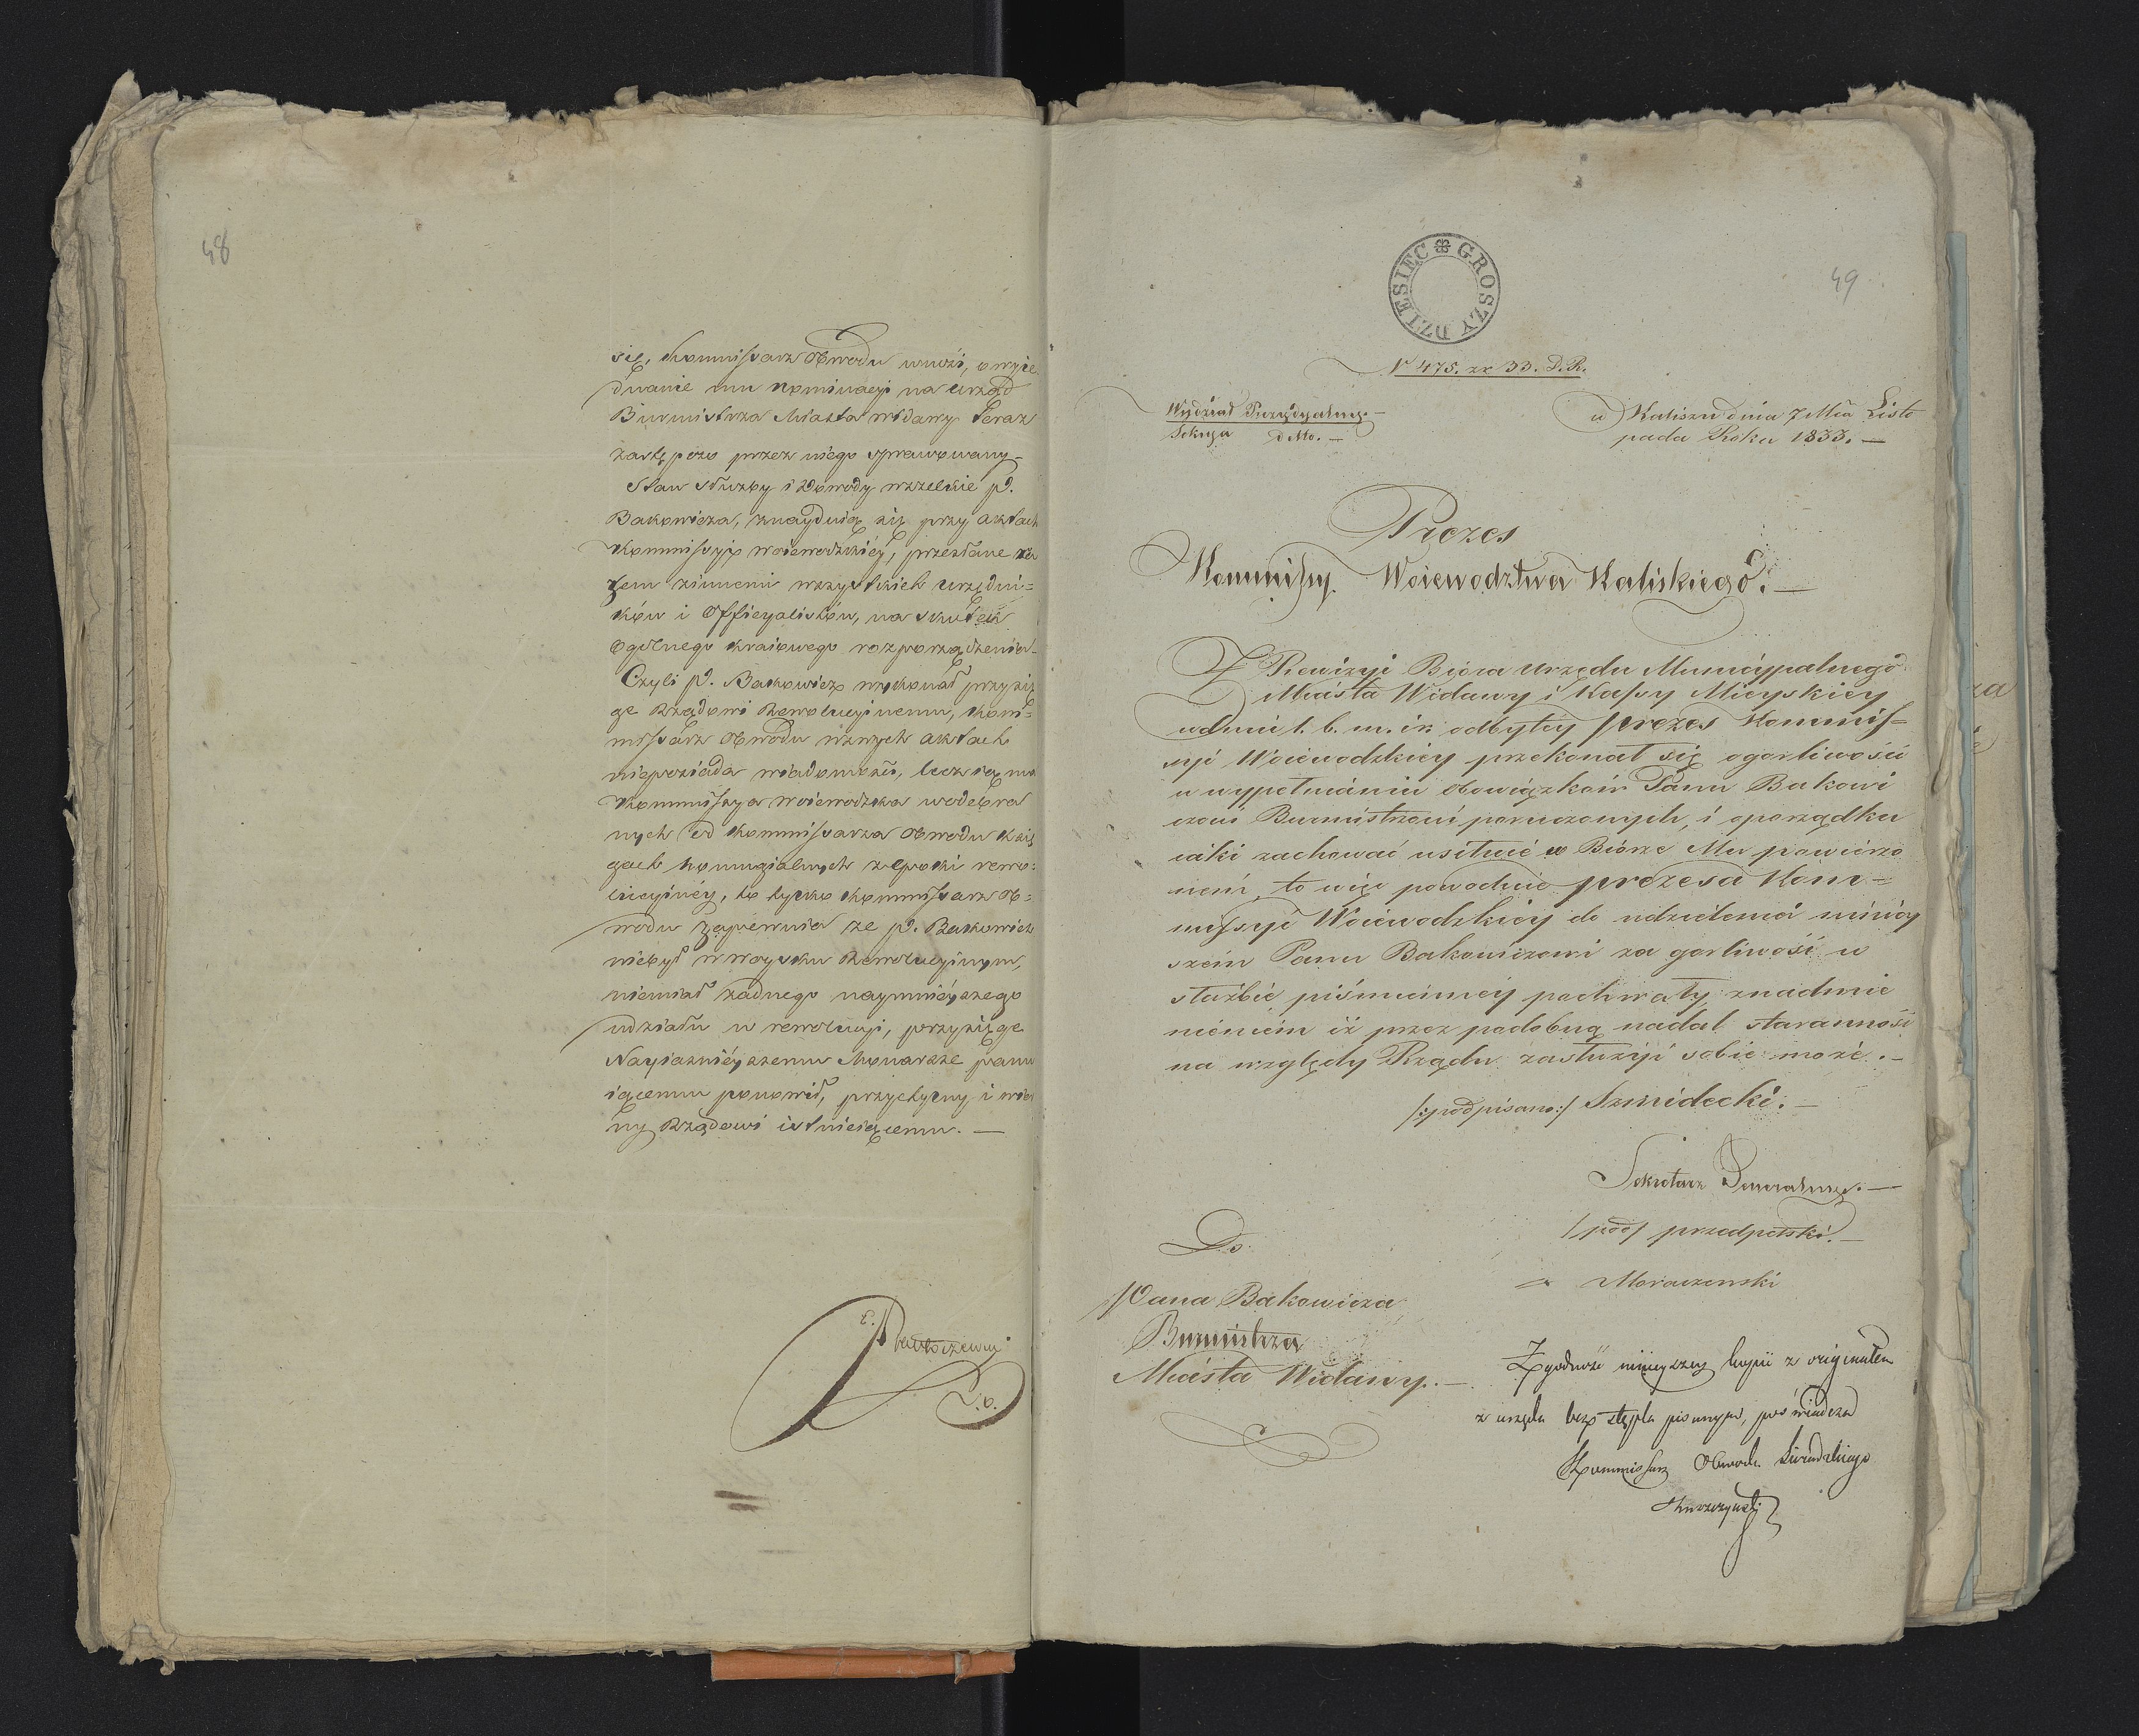 48
się, Kommissarz Obwodu wnosi, o wyie
dnanie mu nominacyi na urząd
Burmistrza Miasta Widawy teraz
zastępczo przez niego sprawowany
Stan służby i Dowody wszelkie P.
Bakowicza, znayduią się przy aktach
Kommissyi woiewodzkiéy, przesłane ra
zem zinnemi wszystkich urzędni=
ków i Officyalistów, na skutek
Ogólnego kraiowego rozporządzenia
Czyli P. Bakowicz wykonał przysię
gę Rządowi Rewolucyinemu, Kom=
missarz Obwodu wswych aktach
nieposiada wiadomości, lecz ią ma
Kommissya Woiewodzka wodebra
nych od Kommissarza Obwodu Xsię
gach homagialnych zepoki rewo=
lucyinéy, to tylko Kommissarz Ob=
wodu zapewnia że P. Bakowicz
niebył wwoysku Rewolucyinym,
niemiał żadnego naymnieyszego
udziału w rewolucyi, przysięgę
Nayiaśniéyszemu Monarsze panu
iącemu ponowił, przychylny i wier
ny Rządowi istnieiącemu. —
49
DZIESIĘC GROSZY
N 475. zr 33. D. R.
Wydział Prezydyalny. —
Sekcya dtto. —
w Kaliszu dnia 7 Mca Listo
pada Roku 1833. —
Prezes
Kommissyi Woiewodztwa Kaliskiego. —
Z Rewizyi Bióra Urzędu Municypalnego
Miasta Widawy i Kassy Mieyskiey
wdniu 1. b. m. i r. odbytey Prezes Kommis=
syi Woiewodzkiey przekonał się ogorliwości
w wypełnianiu obowiązków Panu Bakowi
czowi Burmistrzowi poruczonych, i oporządku
iaki zachować usiłuie w Biórze Mu powierzo
nem, to więc powoduie Prezesa Kom=
missyi Woiewodzkiey do udzielenia ninięy
szem Panu Bakowiczowi za gorliwość w
służbie piśmienney pochwały, znadmie
nieniem iż przez podobną nadal staranność
na względy Rządu zasłużyć sobie może. —
/:podpisano:/ Szmidecki. —
Sekretarz Jeneralny. —
/pod/ Przedpełski. —
Moraczewski
Do
Pana Bakowicza
Burmistrza
Miasta Widawy. —
Zgodność ninięyszey kopii z originałem
z urzędu bez stępla pisanym, poświadcza
Kommissarz Obwodu Sieradzkiego